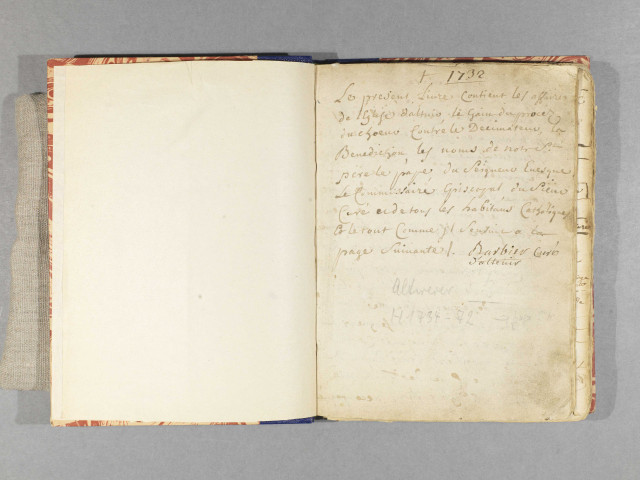 † 1732
Le present Livre Contient les affaires
de l'Eglise d'altvir le Gain du procès
du choeur Contre le Decimateur, la
Benediction les noms de notre St
père le pape du Seigneur Eveque
Le Commissaire Episcopal du Sieur
Curé et de tous les habitans Catholiques
Et le tout Comme il Sensuit a la
page Suivante /. Barbier Curé
d'altvir
Altwerer